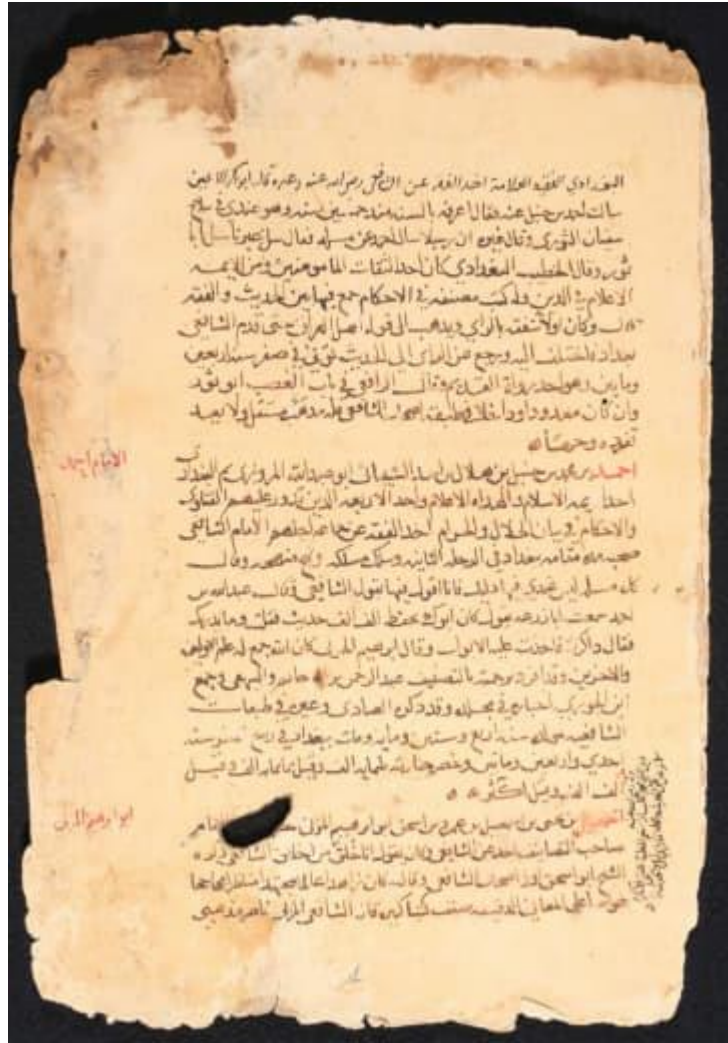 البغدادي الفقيه العلامة اخذ الفقه عن الشافعي رضي الله عنه وغيره قال ابو بكر الاعين
سالت احمد بن حنبل عنه فقال اعرفه بالسنة منذ خمسين سنة وهو عندي في مسلاخ
سفيان الثوري وقال غيره ان رجلا سال احمد عن مسلة فقال سل غيرنا سل ابا
ثور وقال الخطيب البغدادي كان احد الثقات المامونين ومن الايمة
الاعلام في الدين وله كتب مصنفة في الاحكام جمع فيها بين الحديث والفقه
قال وكان اولا يتفقه بالراي ويذهب الى قول اهل العراق حتى قدم الشافعي
بغداد فاختلف اليه ورجع عن الراي الى الحديث توفي في صفر سنة اربعين
ومايتين وهو احد رواة القديم وقال الرافعي في باب الغصب ابو ثور
وان كان معدودا وداخلا في طبقة اصحاب الشافعي فله مذهب مستقل ولا يعد
تفرده وجها
الامام احمد
احمد بن محمد بن حنبل بن هلال بن اسد الشيباني ابو عبد الله المروزي ثم البغدادي
احد ايمة الاسلام والهداة الاعلام واحد الاربعة الذين تدور عليهم الفتاوى
والاحكام في بيان الحلال والحرام اخذ الفقه عن جماعة اجلهم الامام الشافعي
صحبه مدة مقامه ببغداد في الرحلة الثانية وسلك مسلكه وقال
كل مسلة ليس عندي فيها دليل فانا اقول فيها بقول الشافعي وقال عبد الله بن
احمد سمعت ابا زرعة يقول كان ابوك يحفظ الف الف حديث فقلت وما يدريك
فقال ذاكرته فاخذت عليه الابواب وقال ابرهيم الحربي كان الله جمع له علم الاولين
والاخرين وقد افرد ترجمته بالتصنيف عبد الرحمن بن ابي حاتم والبيهقي وجمع
ابن الجوزي اخباره في مجلد وقد ذكره العبادي وغيره في طبقات
الشافعية مولده سنة اربع وستين وماية ومات ببغداد في ربيع سنة
احدي واربعين ومايتين وحضر جنازته ثمانماية الف وقيل
الف الف وقيل اكثر
ابو ابرهيم المزني
اسمعيل بن يحيى بن اسمعيل بن عمرو بن اسحق ابو ابرهيم المزني
صاحب التصانيف اخذ عن الشافعي وكان يقول انا خلق من اخلاق الشافعي ذكره
الشيخ ابو اسحق اول اصحاب الشافعي وقال كان زاهدا عالما مجتهدا مناظرا محجاجا
غواصا على المعاني الدقيقة صنف كتبا كثيرة قال الشافعي المزني ناصر مذهبي